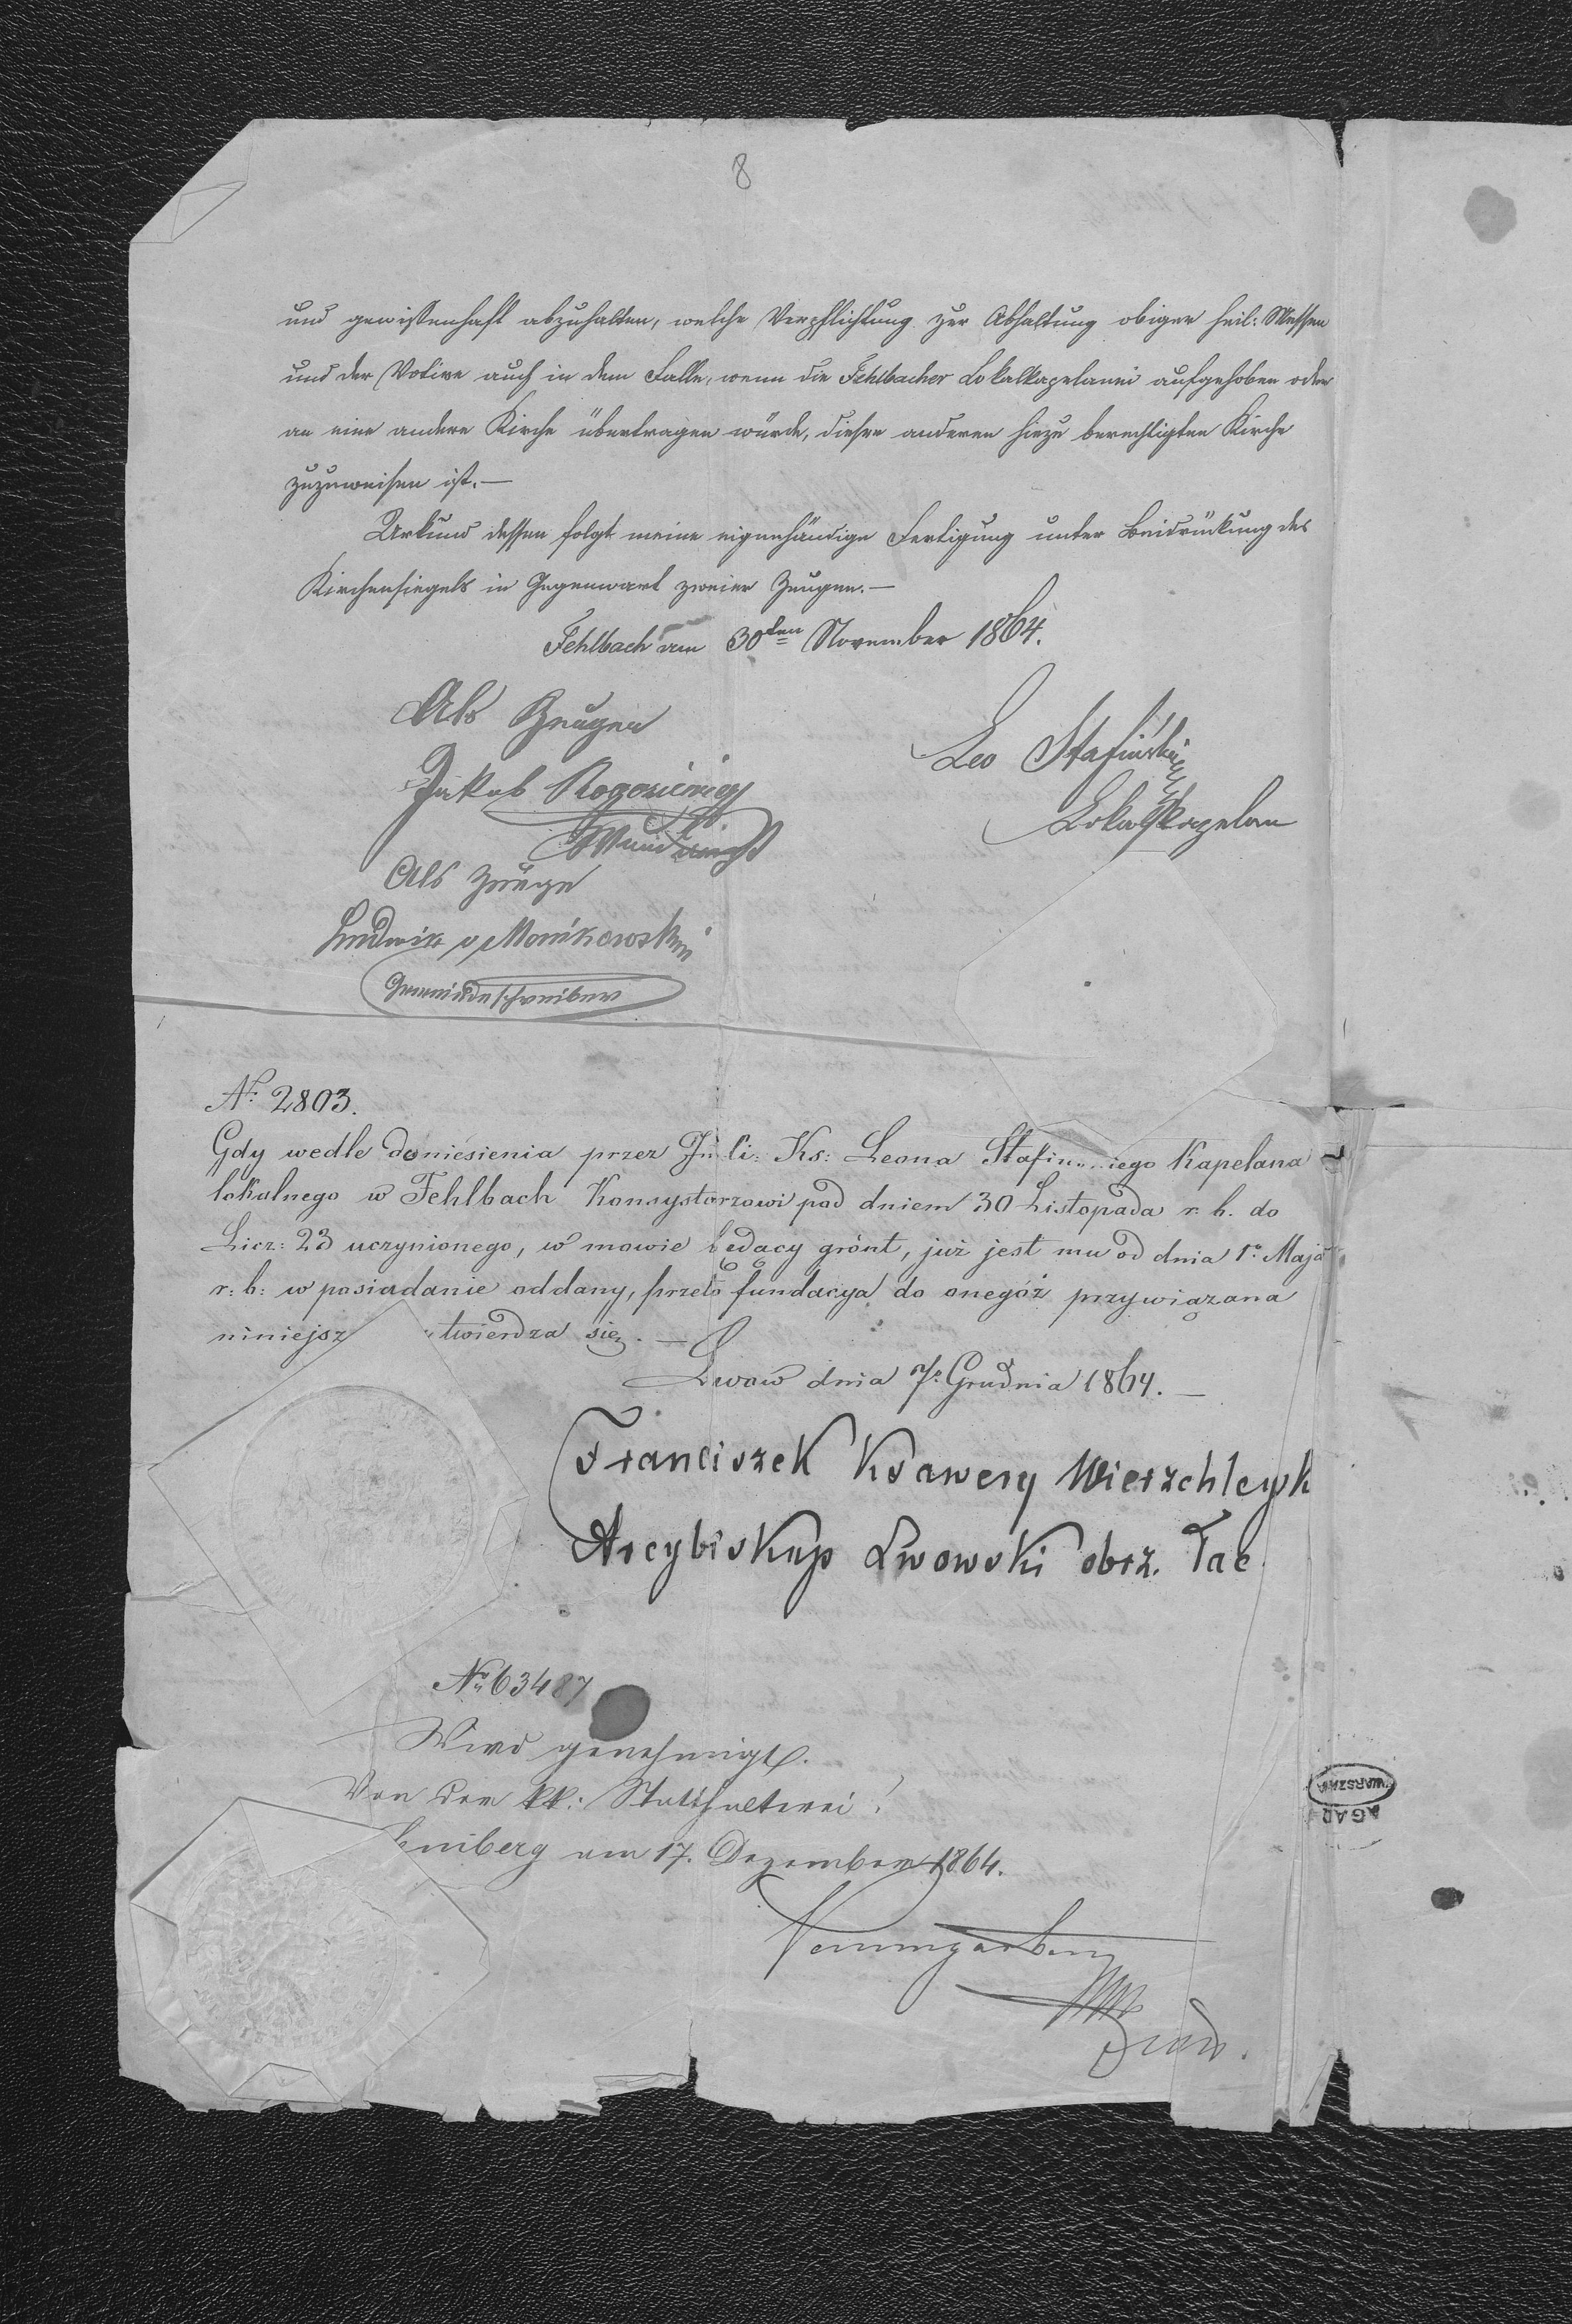 8
und gewissenhaft abzuhalten, welche Verpflichtung zur Abhaltung obiger heil: Messen
und der Votive auch in dem Falle, wenn die Fehlbacher Lokalkapelanei aufgehoben oder
an eine andere Kirche übertragen würde, dieser anderen hiezu berechtigten Kirche
zuzuweisen ist.—
Urkund dessen folgt meine eigenhändige Fertigung unter Beidrückung des
Kirchensiegels in Gegenwart zweier Zeugen.—
Fehlbach am 30ten November 1864.
Als Zeugen
Leo Stafiński
Jakob
Lokalkapelan
Als Zeuge
Ludwik v Mońkowski
Gemeindeschreiber
No 2803.
Gdy wedle doniesienia przez Ks: Leona Kapelana
lokalnego w Fehlbach Konsystorzowi pod dniem 30 Listopada r. b. do
Licz: 23 uczynionego, w mowie będący grónt, już jest mu od dnia 1o Maja
r: b: w posiadanie oddany, przeto fundacya do onegóż przywiązana
niniejsz twierdza się. —
Lwow dnia 7o Grudnia 1864.—
Franciszek Ksawery Wierzchleysk
Arcybiskup Lwowski obrz. łac
No 63487
Wird genehmigt.
Von der k.k: Statthalterei.
emberg am 17. Dezember 1864.
WARSZAWA
AGAD